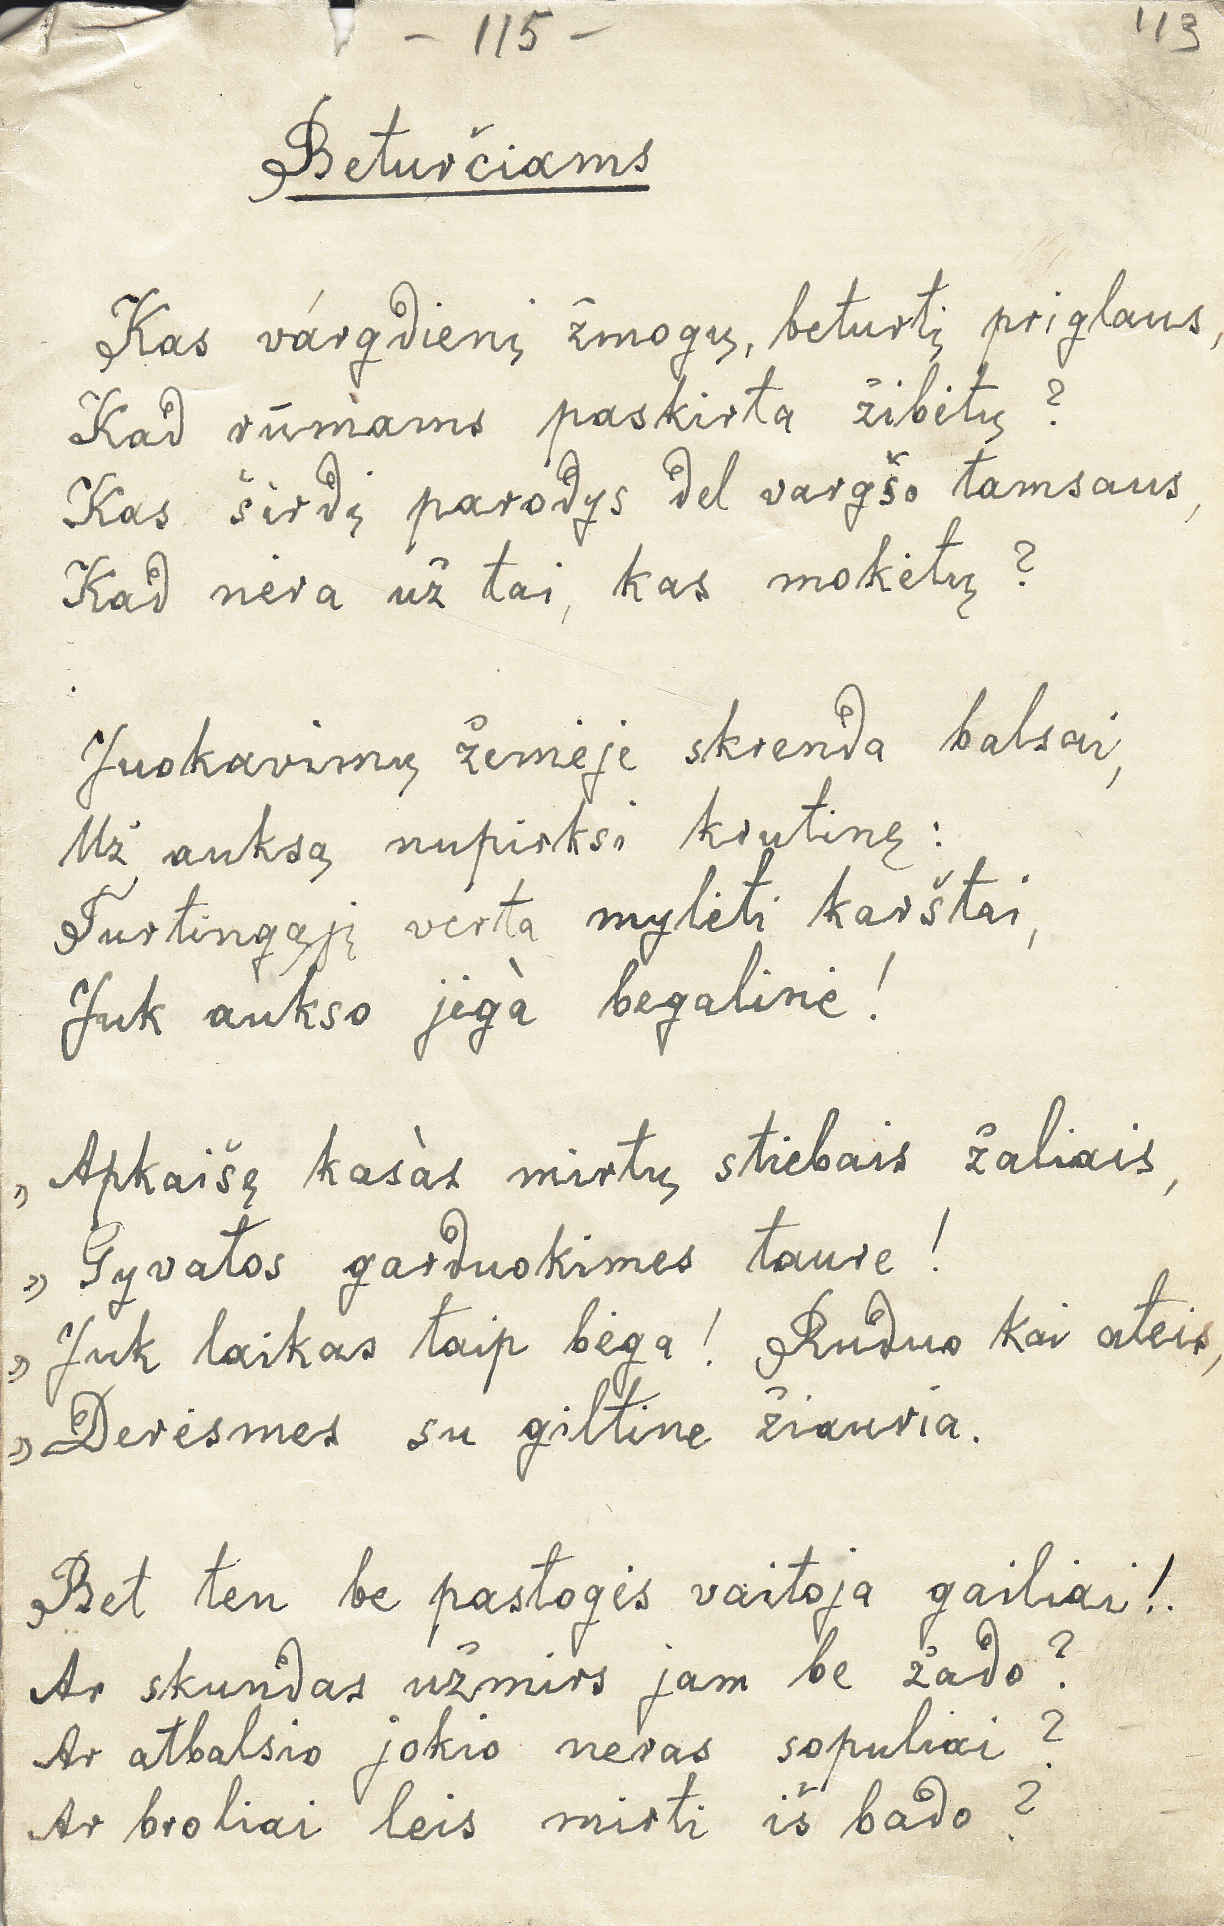 - 115 -
113
Beturčiams
Kas várgdienį žmogų, beturtį priglaus,
Kad rūmams paskirta žibėtų?
Kas širdį parodys dėl vargšo tamsaus,
Kad nėra už tai, kas mokėtų?
Juokavimų žemėje skrenda balsai,
Už auksą nupirksi krutinę:
Turtingąjį verta mylėti karštai,
Juk aukso jėgà begalinė!
„Apkaišę kasàs mirtų stiebais žaliais,
„Gyvatos garduokimės taure!
„Juk laikas taip bėga! Ruduo kai ateis,
„Derėsmės su giltine žiauria.
Bet ten be pastogės vaitoja gailiai!.
Ar skundas užmirs jam be žado?
Ar atbalsio jokio neras sopuliai?
Ar broliai leis mirti iš bado?